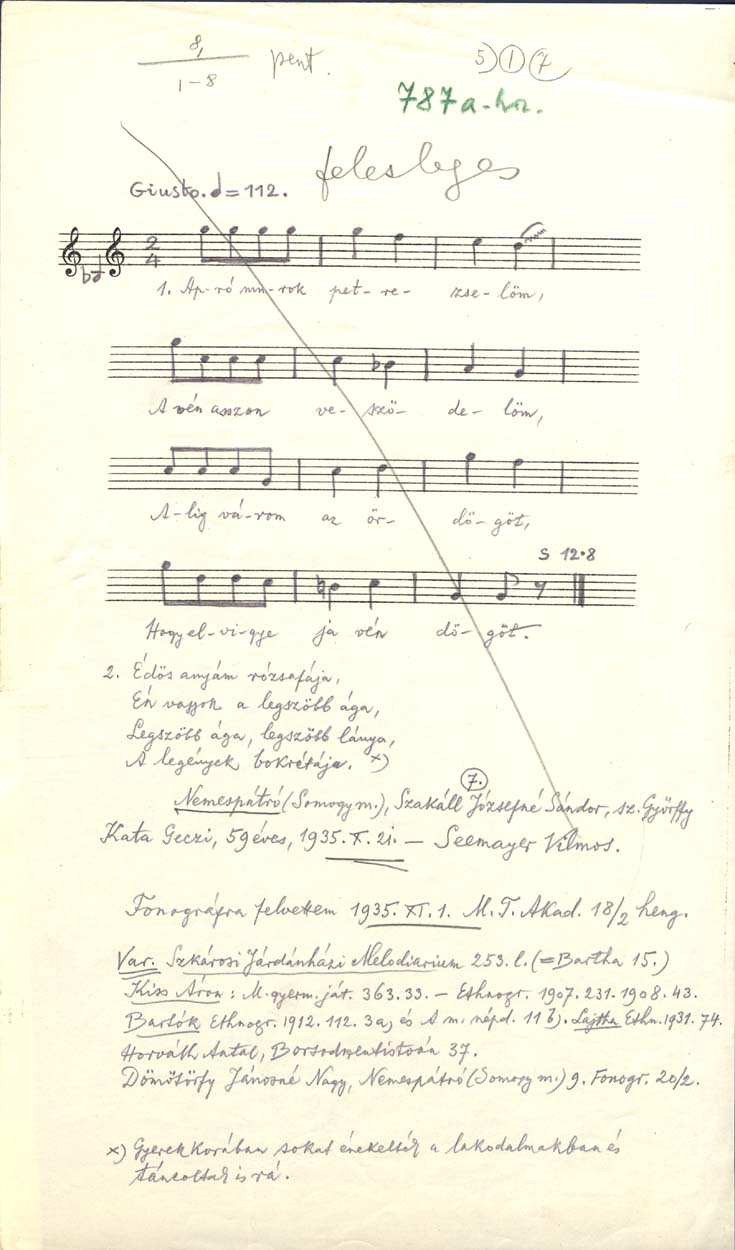 8,
1-8
pent.
5) 1 7
787a-hoz.
felesleges
Giusto. = 112.
2
4
1. Ap-ró mu-rok pet-re-zse-löm,
A vén asszon ve-sző-de-löm,
A-lig vá-rom az ör-dö-göt,
S 12.8
Hogy el-vi-gye ja vén dö-göt.
2. Édös anyám rózsafája,
Én vagyok a legszöbb ága,
Legszöbb ága, legszöbb lánya,
A legények bokrétája. x)
7.
Nemespátró (Somogy m.), Szakáll Józsefné Sándor, sz. Györffy
Kata Geczi, 59 éves, 1935. X. 21. — Seemayer Vilmos.
Fonográfra felvettem 1935. XI. 1. M. T. Akad. 18/2 heng.
Var. Szkárosi Járdánházi Melodiarium 253. l. (= Bartha 15.)
Kiss Áron: M. gyerm. ját. 363. 33. — Ethnogr. 1907. 231. 1908. 43.
Bartók Ethnogr. 1912. 112. 3a, és A m. népd. 11 b). Lajtha Ethn. 1931. 74.
Horváth Antal, Borsodszentistván 37.
Dömötörfy Jánosné Nagy, Nemespátró (Somogy m.) 9. Fonogr. 20/2.
x) Gyerek korában sokat énekelték a lakodalmakban és
táncoltak is rá.